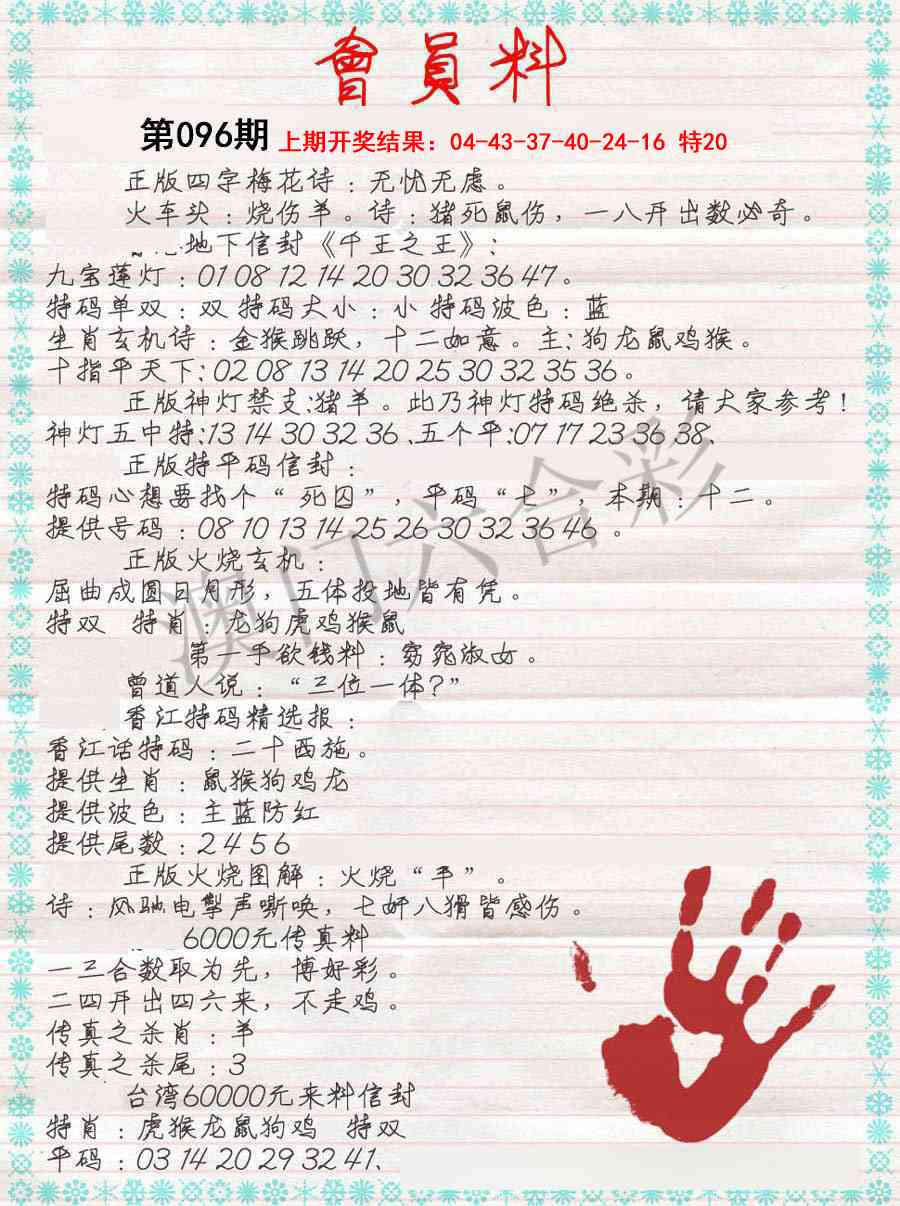 會員料
第096期 上期开奖结果：04-43-37-40-24-16 特20
正版四字梅花诗：无忧无虑。
火车头：烧伤羊。诗：猪死鼠伤，一八开出数必奇。
地下信封《千王之王》：
九宝莲灯：01 08 12 14 20 30 32 36 47。
特码单双：双 特码大小：小 特码波色：蓝
生肖玄机诗：金猴跳跃，十二如意。主：狗龙鼠鸡猴。
十指平天下：02 08 13 14 20 25 30 32 35 36。
正版神灯禁支：猪羊。此乃神灯特码绝杀，请大家参考！
神灯五中特：13 14 30 32 36、五个平：07 17 23 36 38、
正版特平码信封：
特码心想要找个“死囚”，平码“七”，本期：十二。
提供号码：08 10 13 14 25 26 30 32 36 46。
正版火烧玄机：
屈曲成圆日月形，五体投地皆有凭。
特双 特肖：龙狗虎鸡猴鼠
第一手欲钱料：窈窕淑女。
曾道人说：“三位一体？”
香江特码精选报：
香江话特码：二十西施。
提供生肖：鼠猴狗鸡龙
提供波色：主蓝防红
提供尾数：2 4 5 6
正版火烧图解：火烧“手”。
诗：风驰电掣声嘶唤，七奸八猾皆感伤。
6000元传真料
一三合数取为先，博好彩。
二四开出四六来，不走鸡。
传真之杀肖：羊
传真之杀尾：3
台湾60000元来料信封
特肖：虎猴龙鼠狗鸡 特双
平码：03 14 20 29 32 41、
澳门六合彩